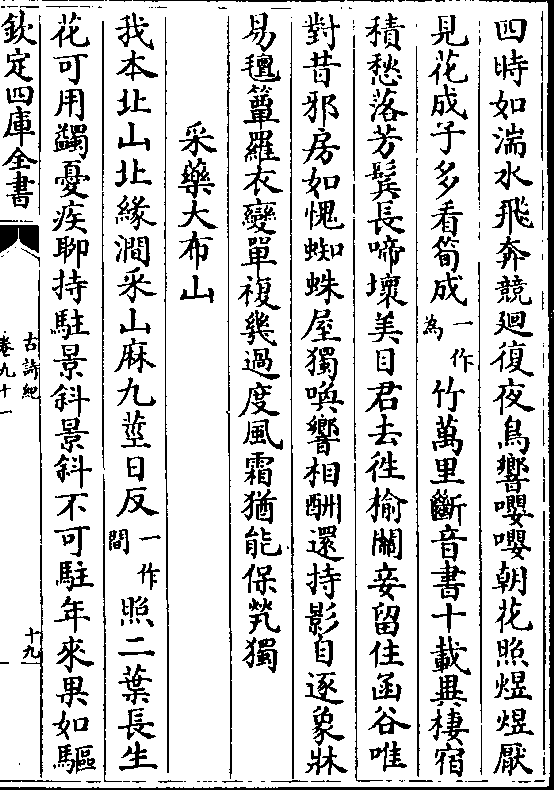 四時如湍水飛奔競廻復夜鳥響嚶嚶朝花照煜煜厭
見花成子多看筍成一作為竹萬里斷音書十載異棲宿
積愁落芳鬢長啼壞美目君去徃榆關妾留住函谷唯
對昔邪房如愧蜘蛛屋獨喚響相酬還持影自逐象牀
易氊簟羅衣變單複幾過度風霜猶能保煢獨
采藥大布山
我本北山北緣澗采山麻九莖日反一作間照二葉長生
花可用蠲憂疾聊持駐景斜景斜不可駐年來果如驅
欽定四庫全書
古詩紀
卷九十一
十九